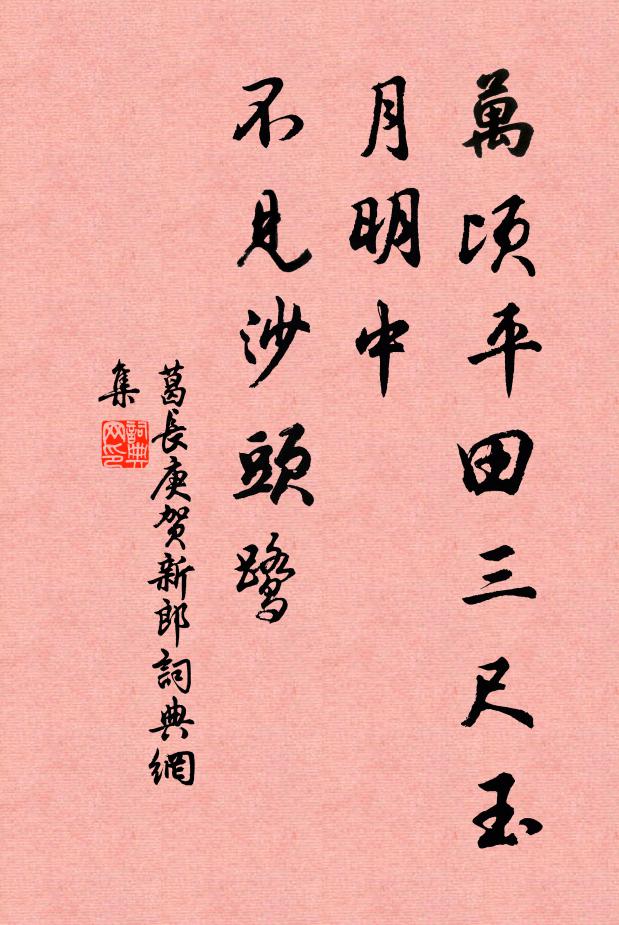 萬頃平田三尺玉
月明中
不見沙頭鷺
葛長庚賀新郎詞典網
集
詞典
网印